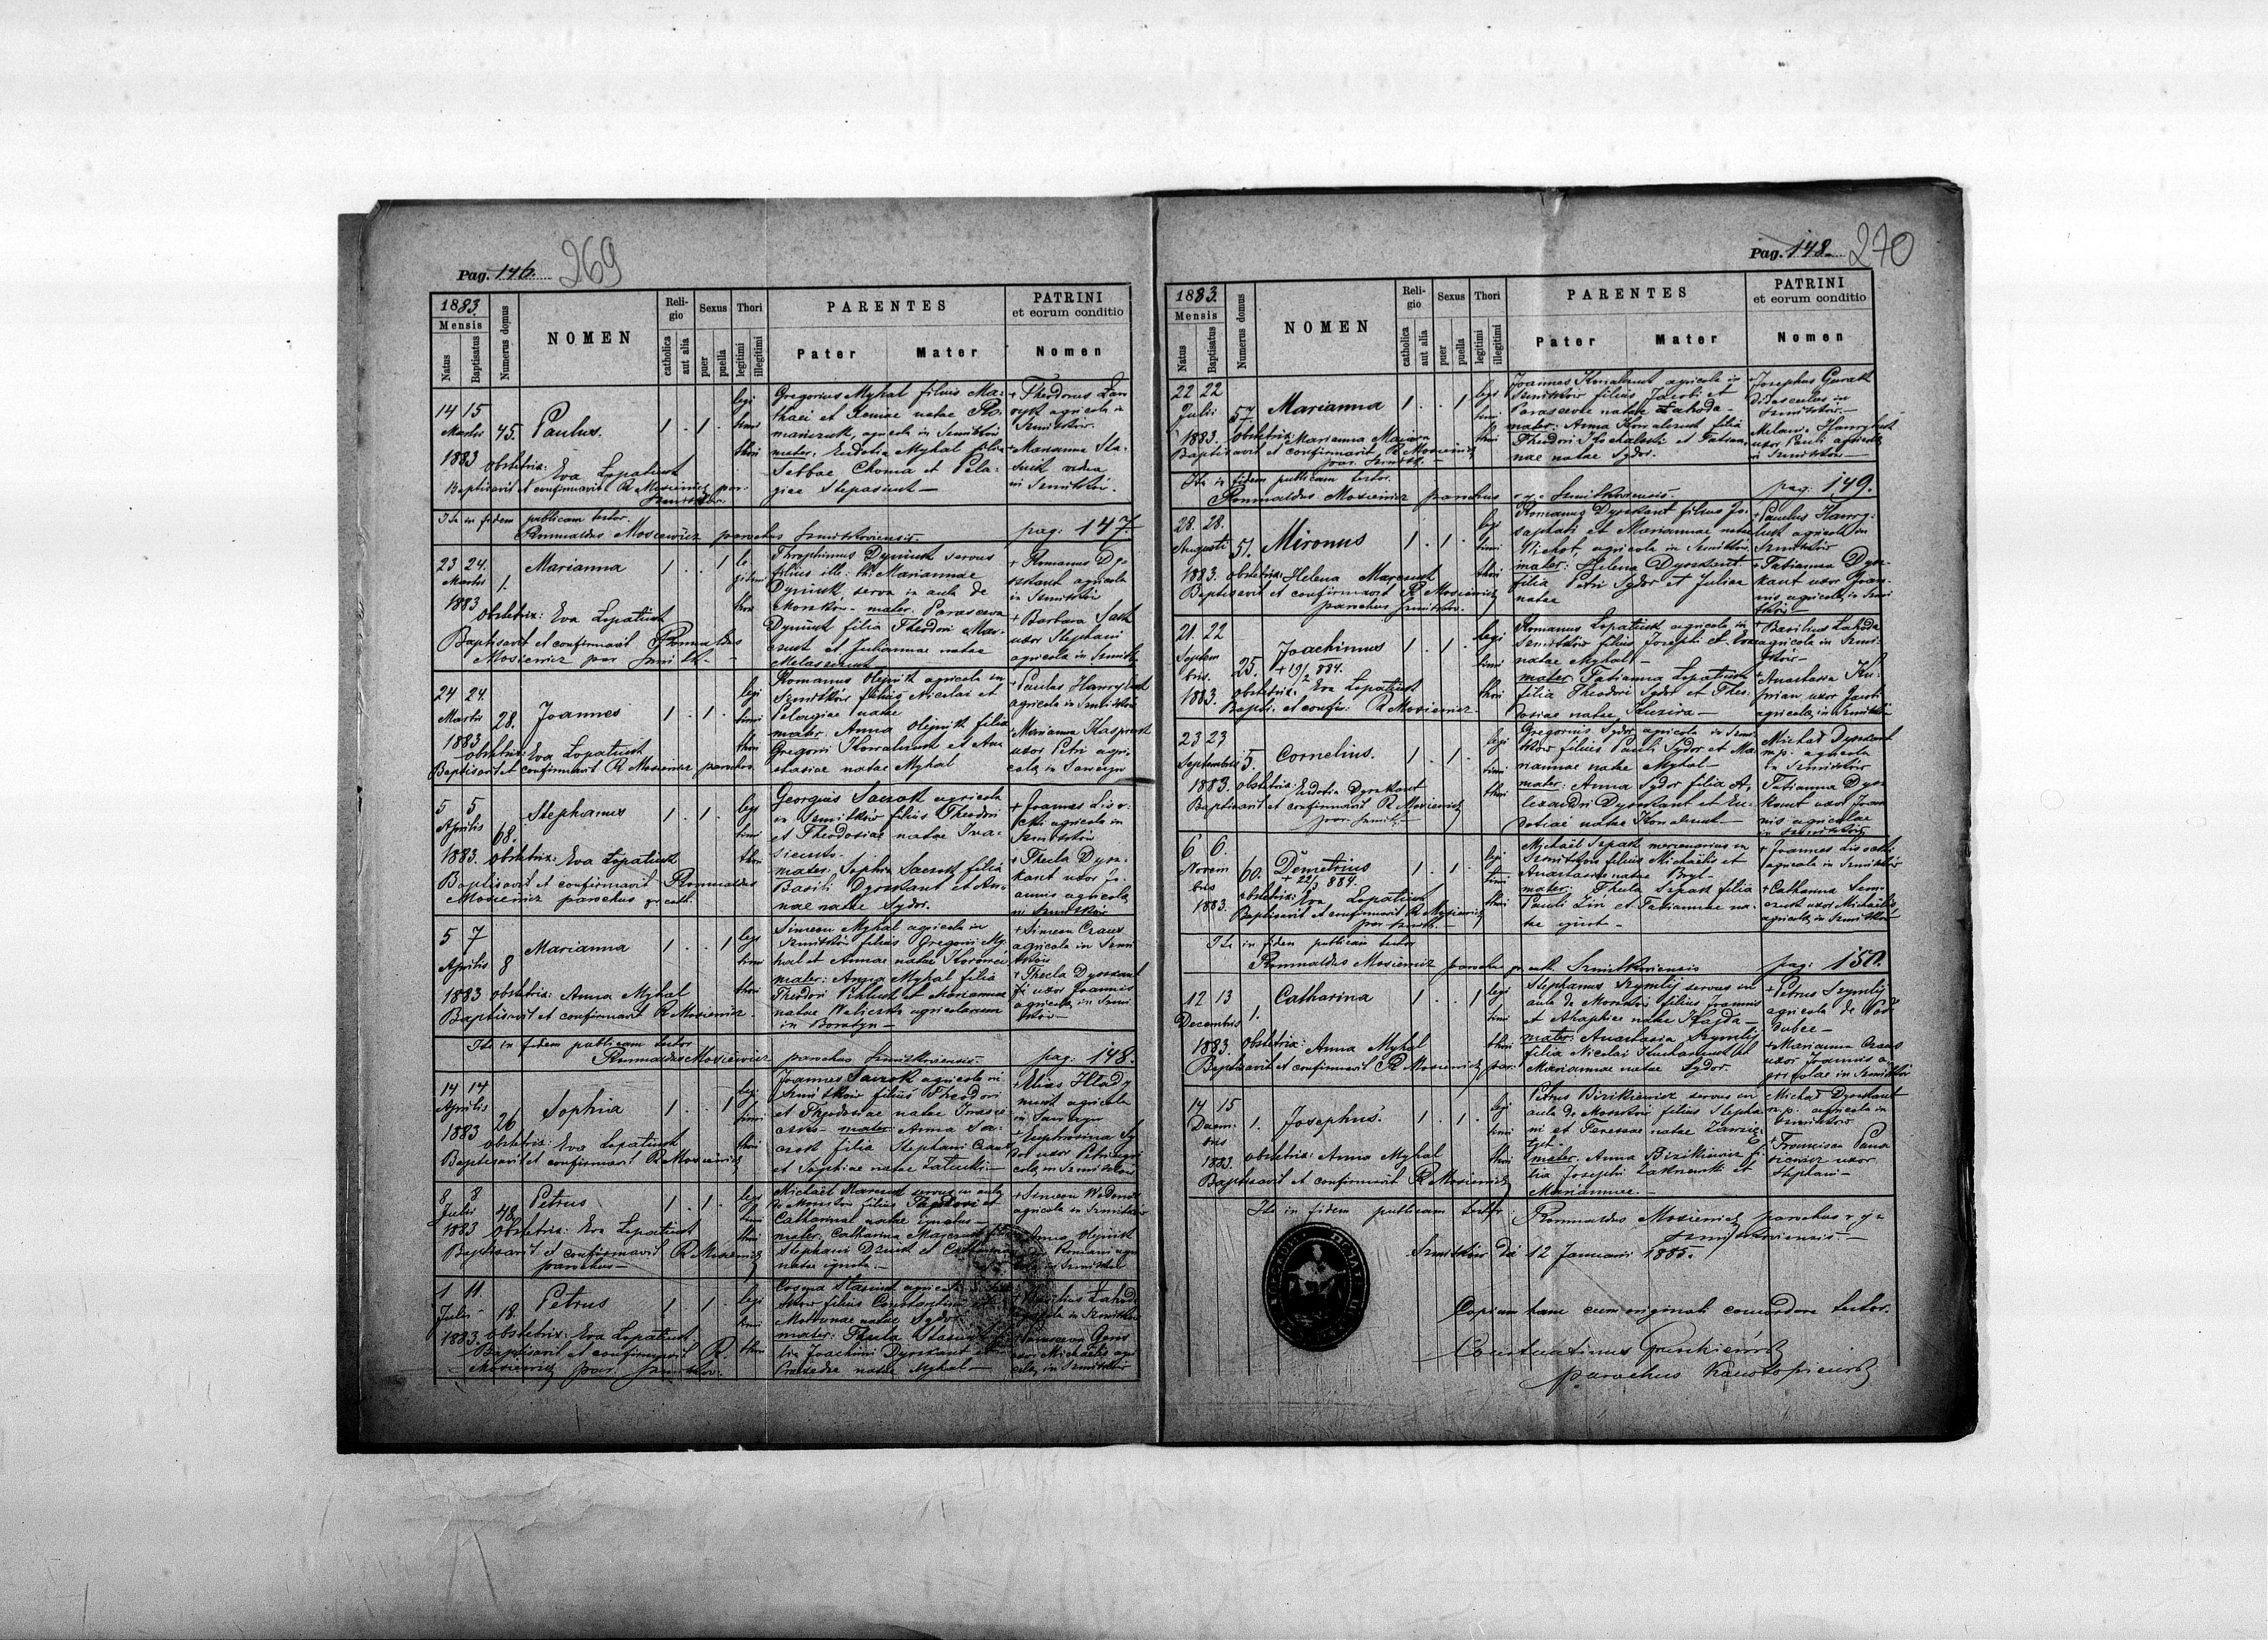 Pag. 146. 269
1883.
Mensis
Natus
Baptisatus
Numerus domus
NOMEN
Religio
catholica
aut alia
Sexus
puer
puella
Thori
legitimi
illegitimi
PARENTES
Pater
Mater
PATRINI
et eorum conditio
Nomen
14 15
Martii
1883
45.
Paulus.
1 . 1 .
legi
timi
thori
obstetrix: Eva Lopatiuk
Baptisavit et confirmavit R Mosiewicz par.
Gregorius Myhal filius Ma-
thaei et Xeniae natae Ro-
maniuk, agricola in Szmitków
mater: Eudotia Myhal filia
Sabbae Choma et Pela-
giae Stepasiuk —
+ Theodorus
agricola in
Szmitków.
+ Marianna Sta-
siuk vidua
in Szmitków.
Ita in fidem publicam testor.
Romualdus Mosiewicz parochus Szmitkoviensis pag: 147
23 24.
Martii
1883
1.
Marianna
1 . . 1
le
gitimi
thori
obstetrix: Eva Lopatiuk
Baptisavit et confirmavit Romualdus
Mosiewicz par Szmitk-
Throphimus Dyniuk servus
filius ille: thi Mariannae
Dyniuk, serva in aula de
Moszków - mater: Parasceva
Dyniuk filia Theodori Mar-
czuk et Julianae natae
+ Romanus Dy-
szkant agricola
in Szmitków
+ Barbara Sack
uxor Stephani
agricola in Szmitk.
24 24.
Martii
1883
28.
Joannes
1 . 1 .
legi
timi
thori
obstetrix: Eva Lopatiuk
Baptisavit et confirmavit R Mosiewicz parochus.
Romanus Olejnik agricola in
Szmitków filius Nicolai et
Pelagiae natae
mater: Anna Olejnik filia
Gregorii Kowalczuk et Ana
stasiae natae Myhal
+ Paulus Hawryluk
agricola in Szmitków
Marianna Kasprzak
uxor Petri agri-
cola in Sawczyn
5 5
Aprilis
1883.
68.
Stephanus
1 . 1 .
legi
timi
thori
obstetrix: Eva Lopatiuk
Baptisavit et confirmavit Romualdus
Mosiewicz parochus gr cath.
Georgius Saczok agricola
in Szmitków filius Theodori
et Theodosiae natae Iva-
mater: Sophia Saczok filia
Basili Dyszkant et An-
nae natae Sydor.
+ Joannes Liso-
cki agricola in
Szmitków
+ Thecla Dysz-
kant uxor Jo-
annis agricola
in Szmitków
5 7
Aprilis
1883
8
Marianna
1 . . 1
legi
timi
thori
obstetrix: Anna Myhal
Baptisavit et confirmavit R Mosiewicz.
Simeon Myhal agricola in
Szmitków filius Gregorii My-
hal et Annae natae
mater: Anna Myhal filia
Theodori et Mariannae
natae agricolarum
in Boratyn —
+ Simeon Czaus
agricola in Szmi
tków
+ Thecla Dyszkant
uxor Joannis
agricola in Szmi
tków —
Ita in fidem publicam testor
Romualdus Mosiewicz parochus Szmitkoviensis pag: 148.
14 14
Aprilis
1883
26
Sophia
1 . . 1
legi
timi
thori
obstetrix: Eva Lopatiuk
Baptisavit et confirmavit R Mosiewicz
Joannes Saczok agricola in
Szmitków filius Theodori
et Theodosiae natae
mater: Anna Sa-
czok filia Stephani
et Sophiae natae
+ Elias Hłady
agricola
in Sawczyn
+ Euphrosina Sy
dor uxor Petri agri
cola in Szmitków
8 8
Julii
1883
48.
Petrus
1 . 1 .
legi
timi
thori
obstetrix: Eva Lopatiuk
Baptisavit et confirmavit R Mosiewicz
parochus —
Michaël Marczuk servus in aula
de Moszków filius Theodori et
Catharinae natae ignotae —
mater: Catharina Marczuk filia
Stephani et Catharinae
natae ignota. —
+ Simeon
agricola in Szmitków
Anna Olejnik
Romani
1 11
Julii
1883.
18.
Petrus
1 . 1 .
legi
timi
thori
obstetrix: Eva Lopatiuk.
Baptisavit et confirmavit R
Mosiewicz par. Szmitkow.
Cosma Stasiuk agricola
filius Constantini
natae Sydor
mater: Thecla Stasiuk fi-
lia Joachimi Dyszkant et
Praxedae natae Myhal —
Basilius Łahoda
agricola in Szmitków
uxor Michaëlis agri
cola in Szmitków
Pag. 148. 270
1883.
Mensis
Natus
Baptisatus
Numerus domus
NOMEN
Religio
catholica
aut alia
Sexus
puer
puella
Thori
legitimi
illegitimi
PARENTES
Pater
Mater
PATRINI
et eorum conditio
Nomen
22 22
Julii
1883.
57
Marianna
1 . . 1
legi
timi
thori
obstetrix: Marianna
Baptisavit et confirmavit R Mosiewicz
par. Szmitk. —
Joannes Kowalczuk agricola in
Szmitków filius Jacobi et
Parascevae natae Łahoda —
mater: Anna Kowalczuk filia
Theodori et Tatian-
nae natae Sydor.
Josephus Gurak
in
Szmitków —
Melania Hawryluk
uxor Pauli agricola
in Szmitków —
Ita in fidem publicam testor.
Romualdus Mosiewicz parochus r. g. c. Szmitkoviensis. pag: 149.
28. 28.
Augusti
1883.
51.
Mironus
1 . 1 .
legi
timi
thori
obstetrix: Helena Marczuk
Baptisavit et confirmavit R Mosiewicz
parochus Szmitków.
Romanus Dyszkant filius Jo-
saphati et Mariannae natae
agricola in Szmitków
mater: Helena Dyszkant
filia Petri Sydor et Juliae
natae
+ Paulus Hawry-
luk agricola in
Szmitków
+ Tatianna Dysz-
kant uxor Joan-
nis agricola in Szmi
tków —
21. 22
Septem
bris.
1883.
25.
Joachimus
+ 19/2 884.
1 . 1 .
legi
timi
thori
obstetrix: Eva Lopatiuk
Bapti. et confir. R Mosiewicz.
Romanus Lopatiuk agricola in
Szmitków filius Josephi et Evae
natae Myhal —
mater: Tatianna Lopatiuk
filia Theodori Sydor et Theo-
dosiae natae —
+ Basilius Łahoda
agricola in Szmi-
tków —
+ Anastasia Ku-
prian uxor Jacobi
agricola in Szmitków
23 23
Septembris
1883.
5.
Cornelius.
1 . 1 .
legi
timi
thori
obstetrix: Eudotia Dyszkant
Baptisavit et confirmavit R Mosiewicz
par. Szmitk. —
Gregorius Sydor agricola in Szmi-
tków filius Pauli Sydor et Ma-
riannae natae Myhal —
mater: Anna Sydor filia A-
lexandri Dyszkant et Eu-
dotiae natae Kowalczuk —
Michał Dyszkant
mp. agricola
in Szmitków
Tatianna Dysz-
kant uxor Joan
nis agricolae
in Szmitków
6 6.
Novem
bris
1883.
60.
Demetrius
+ 22/3 884.
1 . 1 .
legi
timi
thori
obstetrix: Eva Lopatiuk
Baptisavit et confirmavit R Mosiewicz
par Szmitk. —
Michaël Szpak mercenarius in
Szmitków filius Michaëlis et
Anastasiae natae Bryl —
mater: Thecla Szpak filia
Pauli et Tatiannae na-
tae ignot —
+ Joannes Lisocki
agricola in Szmitków
+ Catharina Sem-
czuk uxor Michaëlis
agricola in Szmitków
Ita in fidem publicam testor
Romualdus Mosiewicz parochus gr. cath. Szmitkoviensis pag: 150.
12 13
Decembris
1883.
1.
Catharina
1 . . 1
legi
timi
thori
obstetrix: Anna Myhal
Baptisavit et confirmavit R Mosiewicz par.
Stephanus Szymlij servus in
aula de Moszków filius Joannis
et Ahaphiae natae Hajda —
mater: Anastasia Szymlij
filia Nicolai Kucharczuk et
Mariannae natae Sydor.
+ Petrus Szymlij
agricola de
+ Marianna Czaus
uxor Joannis a-
gricolae in Szmitków
14 15
Decem-
bris
1883.
1.
Josephus.
1 . 1 .
legi
timi
thori
obstetrix: Anna Myhal
Baptisavit et confirmavit R Mosiewicz
Petrus Bizikiewicz servus in
aula de Moszków filius Stepha
ni et Teressae natae
mater: Anna Bizikiewicz fi-
lia Josephi Zakrzewski et
Mariannae. —
Michał Dyszkant
m.p. agricola in
Szmitków
+ Francisca
uxor
Stephani —
Ita in fidem publicam testor. Romualdus Mosiewicz parochus r. g. c.
Szmitkoviensis —
Szmitków die 12 Januarii 1885.
Copiam hanc cum originali concordare testor.
Constantinus
parochus